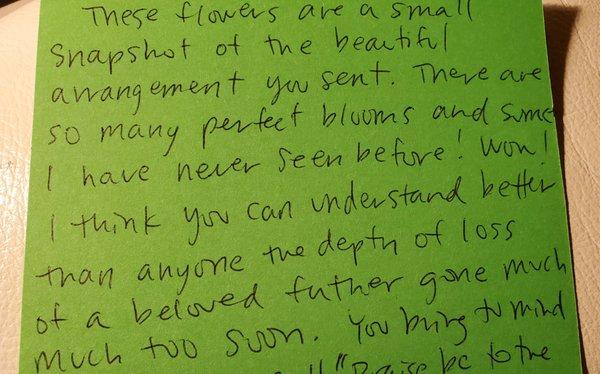 These flowers are a small
snapshot of the beautiful
arrangement you sent. There are
so many perfect blooms and some
I have never seen before! Wow!
I think you can understand better
than anyone the depth of loss
of a beloved father gone much
much too soon. You bring to mind
"Praise be to the